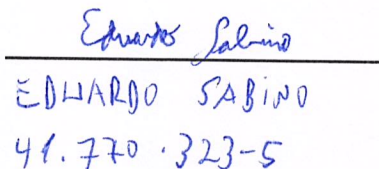 Eduardo Sabino
EDUARDO SABINO
41.770.323-5